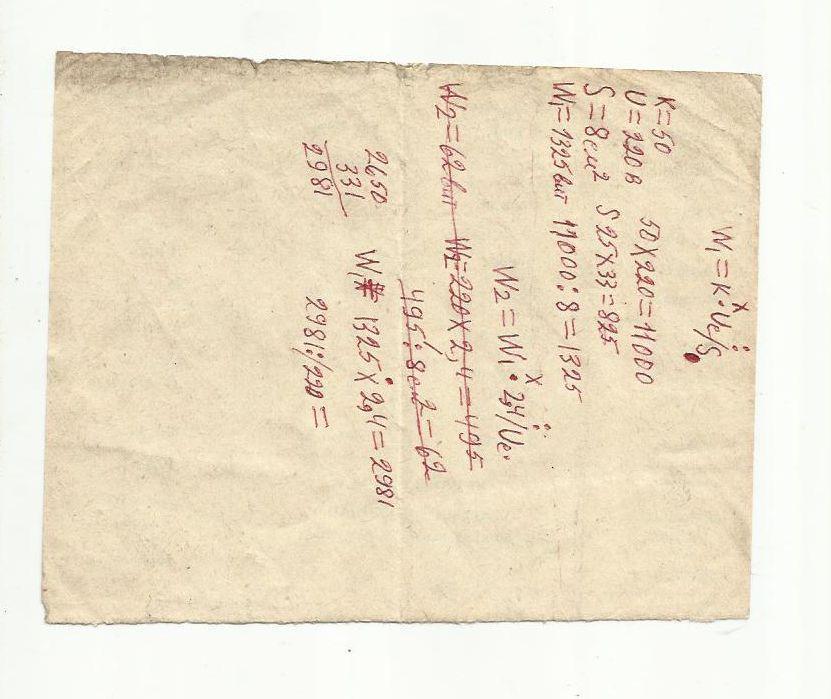 W₁ = K · Uc/S
K = 50 50 × 220 = 11000
U = 220 в
S = 8 см² S 25 × 33 = 825
W₁ = 1325 вит 11000 : 8 = 1325
W₂ = W₁ · 2,4/Uc.
W₂ = 62 вит W₂ = 220 × 2,4 = 495
495 : 8 см² = 62
W₁ 1325 × 2,4 = 2981
2650
331
2981
2981 : /220 =